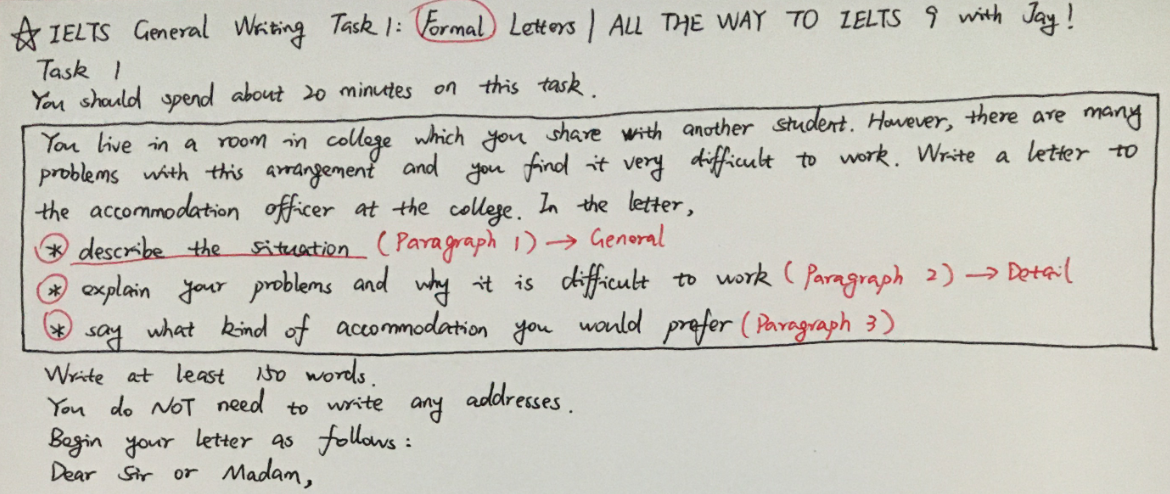 ☆ IELTS General Writing Task 1: Formal Letters | ALL THE WAY TO IELTS 9 with Jay!
Task 1
You should spend about 20 minutes on this task.
You live in a room in college which you share with another student. However, there are many
problems with this arrangement and you find it very difficult to work. Write a letter to
the accommodation officer at the college. In the letter,
* describe the situation (Paragraph 1) → General
* explain your problems and why it is difficult to work (Paragraph 2) → Detail
* say what kind of accommodation you would prefer (Paragraph 3)
Write at least 150 words.
You do NOT need to write any addresses.
Begin your letter as follows:
Dear Sir or Madam,